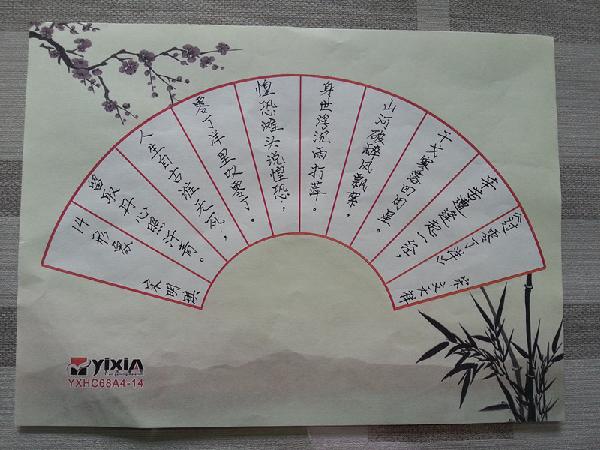 《过零丁洋》
宋文天祥
辛苦遭逢起一经，
干戈寥落四周星。
山河破碎风飘絮。
身世浮沉雨打萍。
惶恐滩头说惶恐，
零丁洋里叹零丁。
人生自古谁无死，
留取丹心照汗青。
YIXIA
YXHC68A4-14